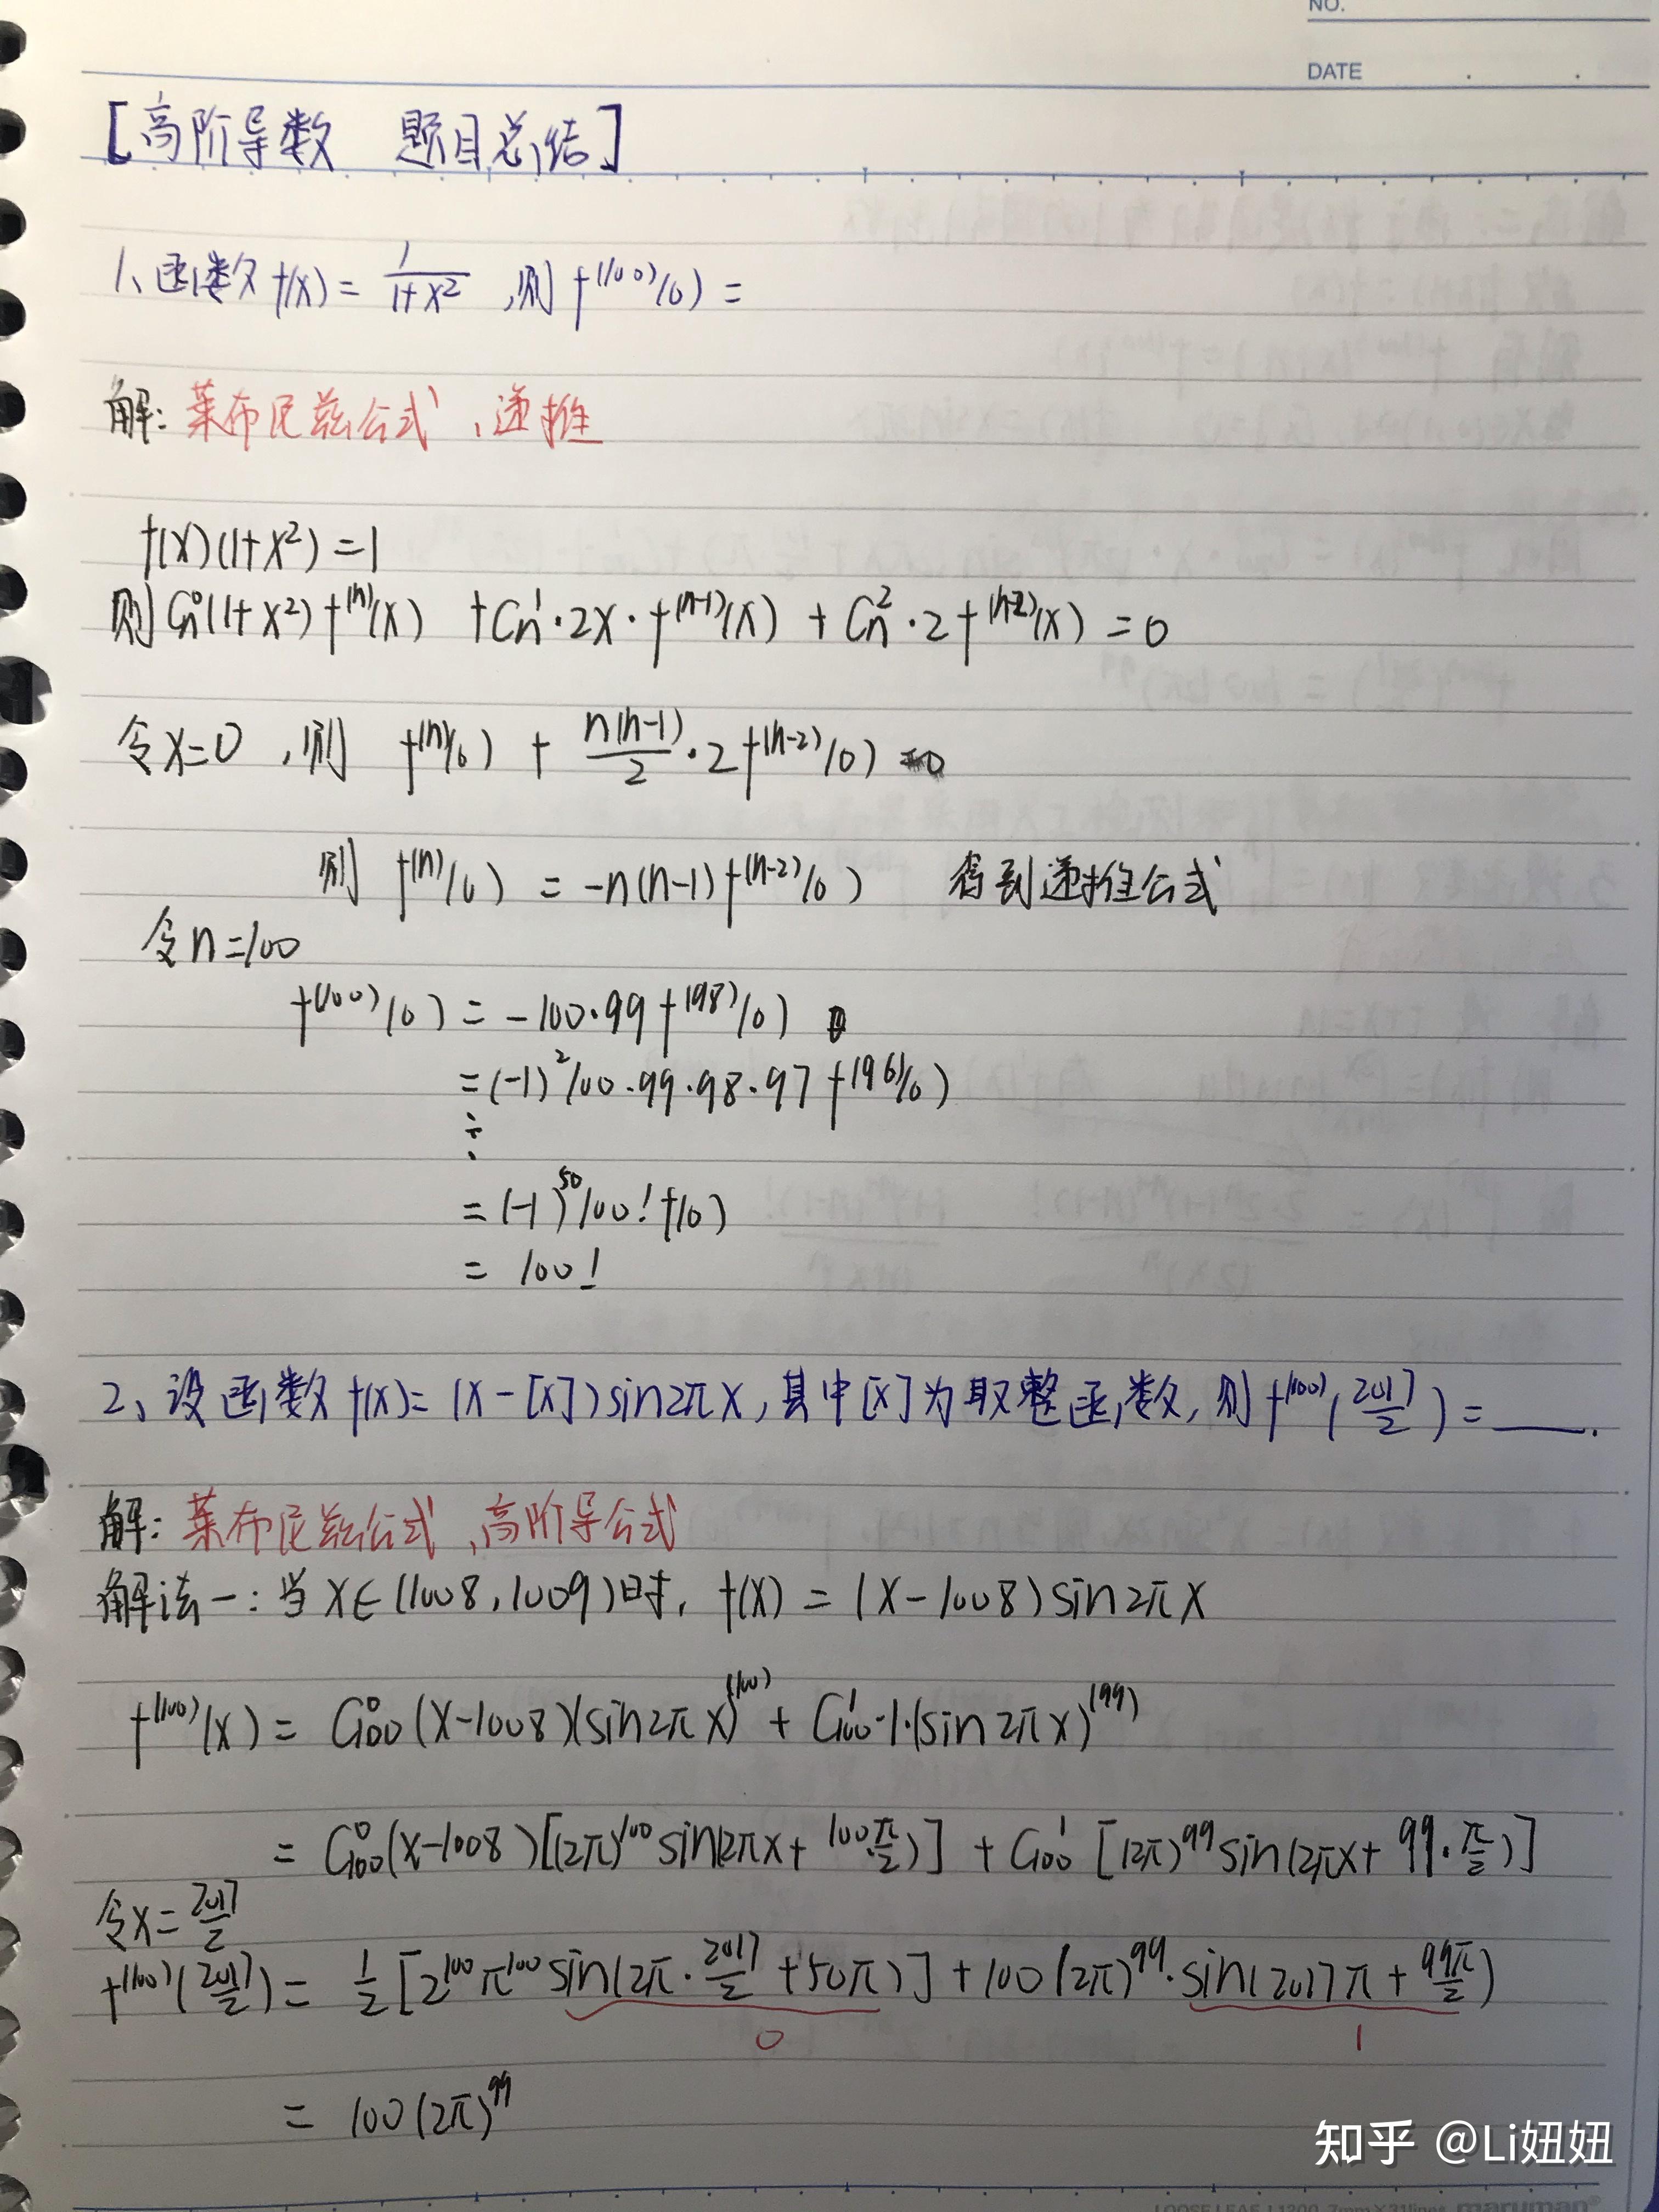 NO.
DATE
[高阶导数 题目总结]
1、函数f(x)= 1/(1+x²) ,则f⁽¹⁰⁰⁾(0) =
解: 莱布尼兹公式、递推
f(x)(1+x²)=1
则Cₙ⁰(1+x²)f⁽ⁿ⁾(x) +Cₙ¹·2x·f⁽ⁿ⁻¹⁾(x) + Cₙ²·2f⁽ⁿ⁻²⁾(x) = 0
令x=0 ,则 f⁽ⁿ⁾(0) + n(n-1)/2 ·2f⁽ⁿ⁻²⁾(0) =0
则 f⁽ⁿ⁾(0) = -n(n-1)f⁽ⁿ⁻²⁾(0) 得到递推公式
令n=100
f⁽¹⁰⁰⁾(0) = -100·99f⁽⁹⁸⁾(0)
=(-1)²100·99·98·97f⁽⁹⁶⁾(0)
⋮
= (-1)⁵⁰100!f(0)
= 100!
2、设函数f(x)= (x-[x])sin2πx,其中[x]为取整函数,则f⁽¹⁰⁰⁾(2017/2)=____.
解: 莱布尼兹公式、高阶导公式
解法一: 当x∈(1008,1009)时, f(x) = (x-1008)sin2πx
f⁽¹⁰⁰⁾(x) = C₁₀₀⁰(x-1008)(sin2πx)⁽¹⁰⁰⁾ + C₁₀₀¹·1·(sin2πx)⁽⁹⁹⁾
= C₁₀₀⁰(x-1008)[(2π)¹⁰⁰sin(2πx+100·π/2)] + C₁₀₀¹[(2π)⁹⁹sin(2πx+99·π/2)]
令x=2017/2
f⁽¹⁰⁰⁾(2017/2)= 1/2[2¹⁰⁰π¹⁰⁰sin(2π·2017/2+50π)]+100(2π)⁹⁹·sin(2017π+99π/2)
0 1
= 100(2π)⁹⁹
知乎 @Li妞妞
LOOSE LEAF L1200 7mm×31lines maruman®